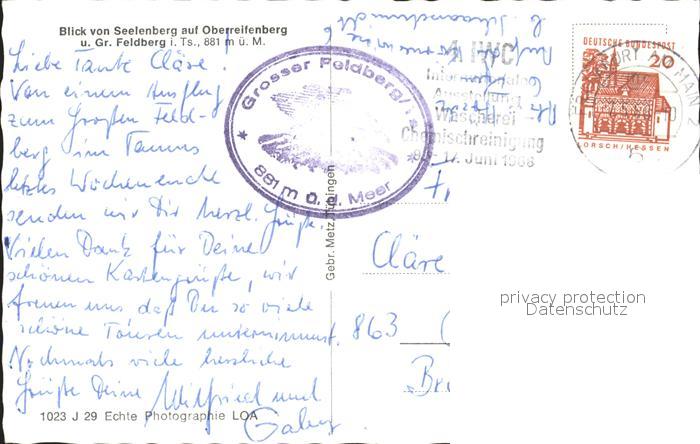 Blick von Seelenberg auf Oberreifenberg
u. Gr. Feldberg i. Ts., 881 m ü. M.
Liebe Tante Cläre!
Von einem Ausflug
zum Großen Feld-
berg im Taunus
letztes Wochenende
senden wir Dir herzl. Grüße.
Vielen Dank für Deine
schönen Kartengrüße, wir
freuen uns daß Du so viele
schöne Touren unternimmst.
Nochmals viele herzliche
Grüße Deine Wilfried und
Gaby
1023 J 29 Echte Photographie LOA
Grosser Feldberg/Ts.
881 m ü. d. Meer
Gebr. Metz, Tübingen
Internationale
Ausstellung
Wäscherei
Chemischreinigung
17. Juni 1966
DEUTSCHE BUNDESPOST
20
LORSCH/HESSEN
Cläre
863
privacy protection
Datenschutz